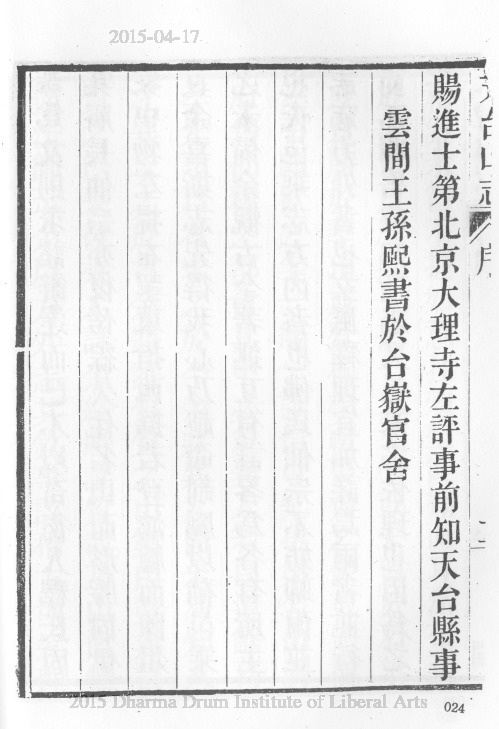 2015-04-17
賜進士第北京大理寺左評事前知天台縣事
雲間王孫熙書於台嶽官舍
2015 Dharma Drum Institute of Liberal Arts
024